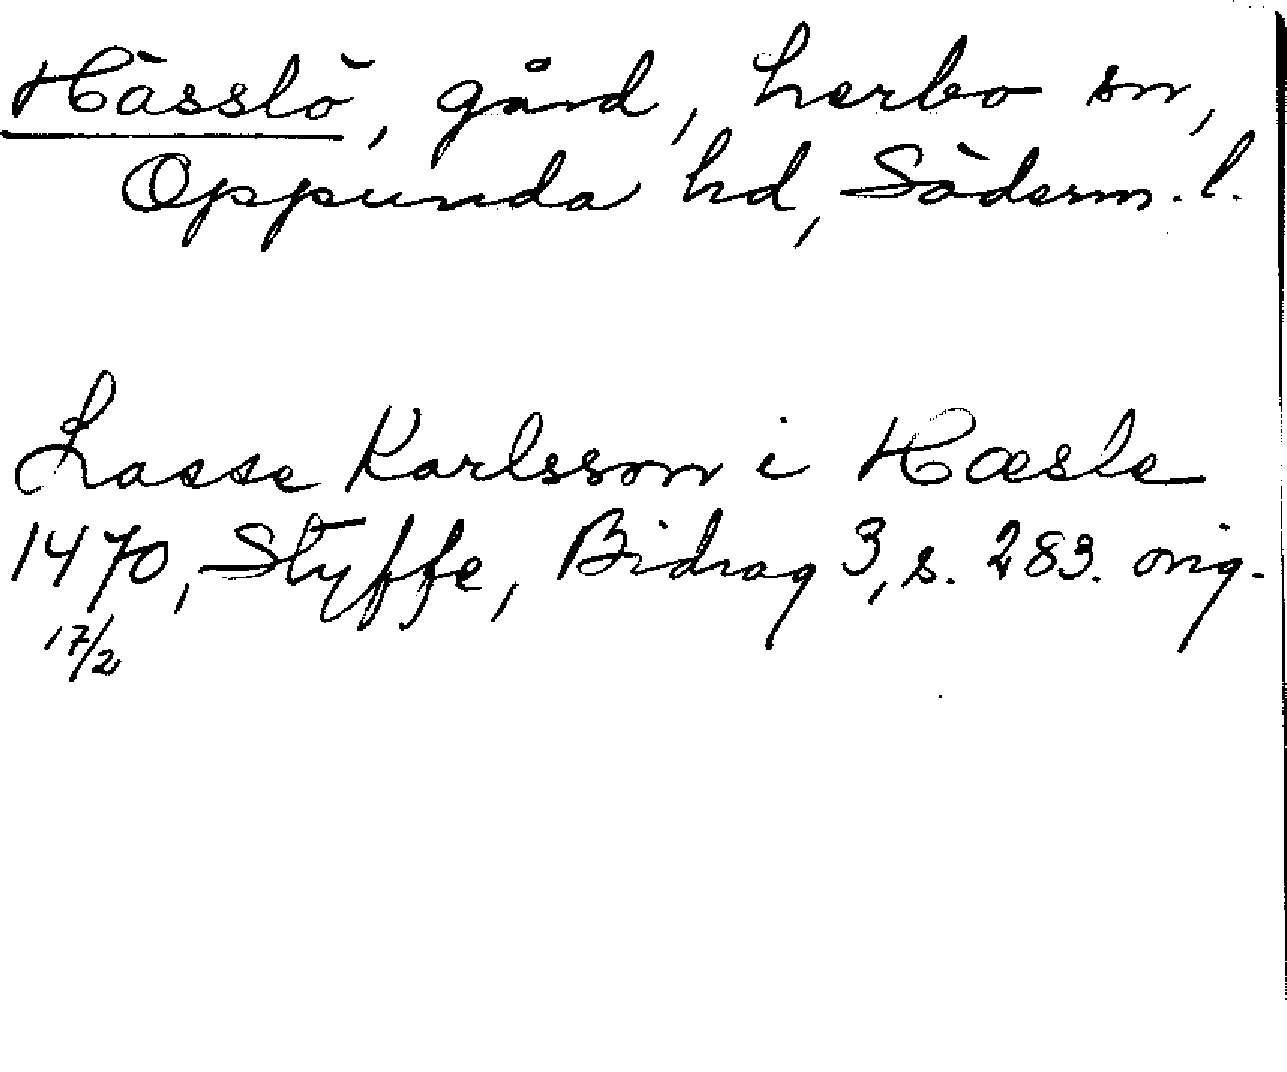 Hässlö, gård, Lerbo sn,
Oppunda hd, Söderm. l.
Lasse Karlsson i Hæsle
1470, Styffe, Bidrag 3, s. 283. orig.
17/2